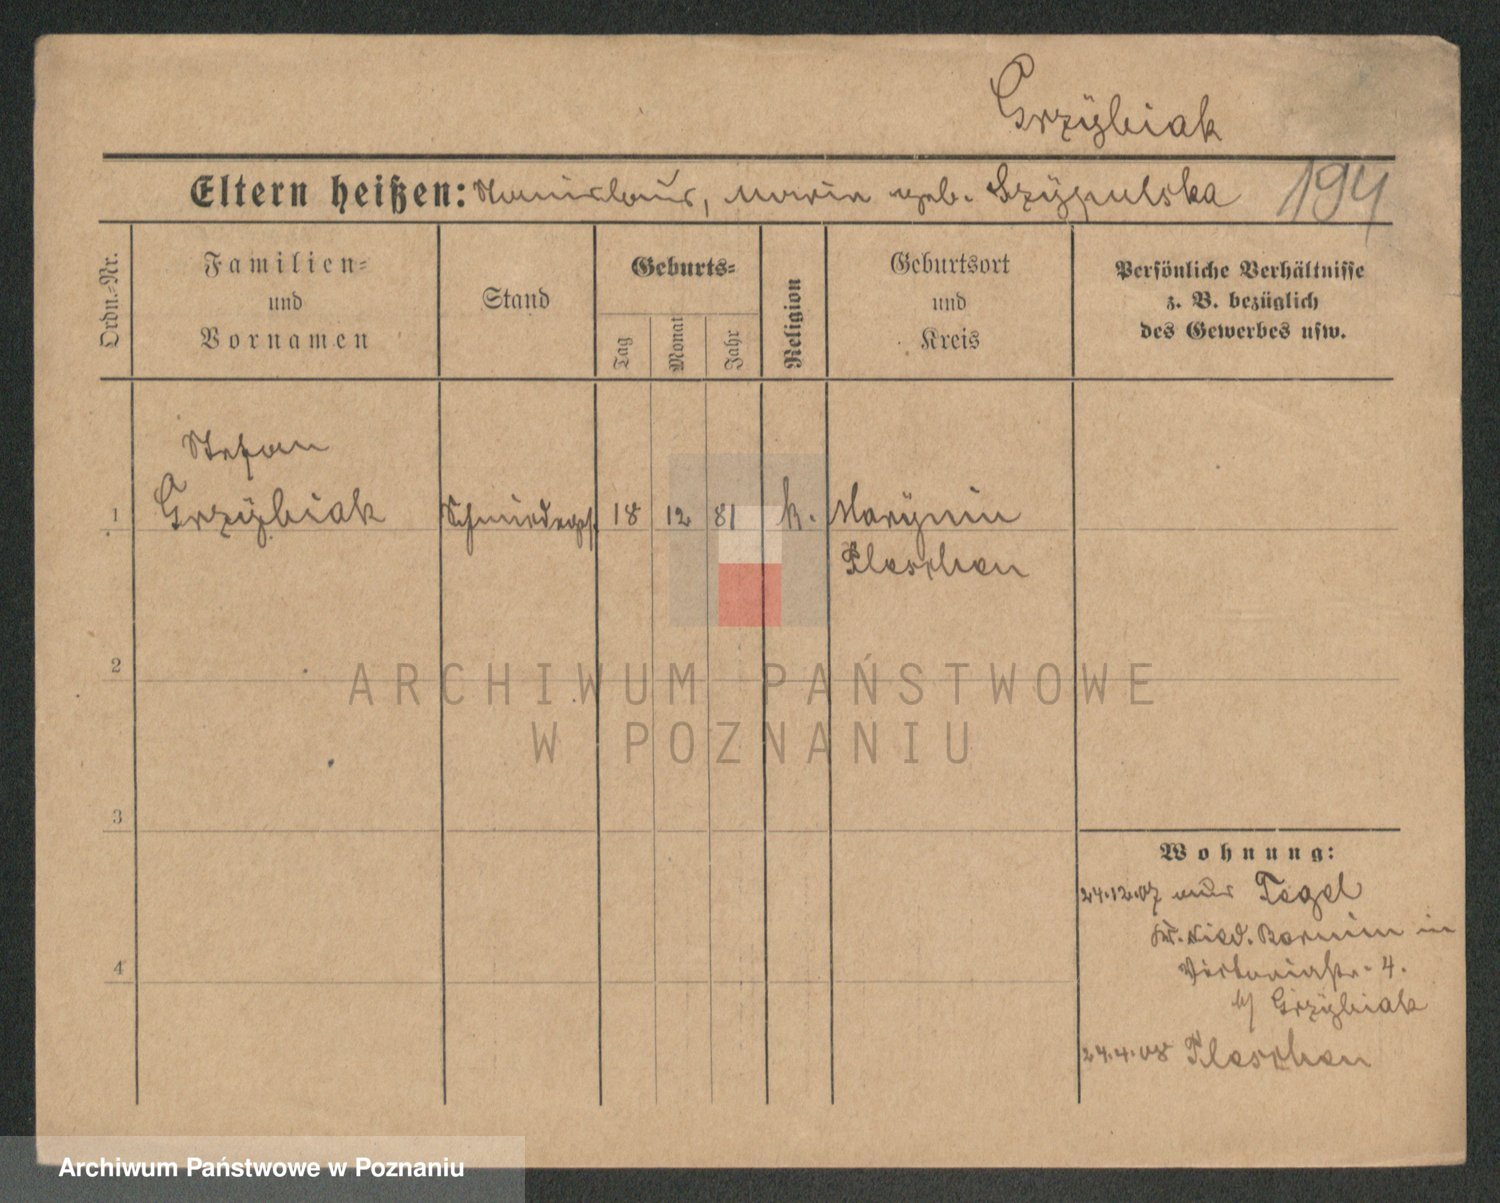 Grzÿbiak
Eltern heißen: Stanislaus, Maria geb. Szÿpulska 194
Ordn.-Nr.
Familien-
und
Vornamen
Stand
Geburts-
Tag
Monat
Jahr
Religion
Geburtsort
und
Kreis
Persönliche Verhältnisse
z. B. bezüglich
des Gewerbes usw.
Stefan
1 Grzÿbiak Schmiedeges. 18 12 81 k. Marÿnin
Pleschen
2
3
4
Wohnung:
24.12.07 aus Tegel
Kr. Nied. Barnim in
Viktoriastr. 4.
b/ Grzÿbiak
24.4.08 Pleschen
ARCHIWUM PAŃSTWOWE
W POZNANIU
Archiwum Państwowe w Poznaniu